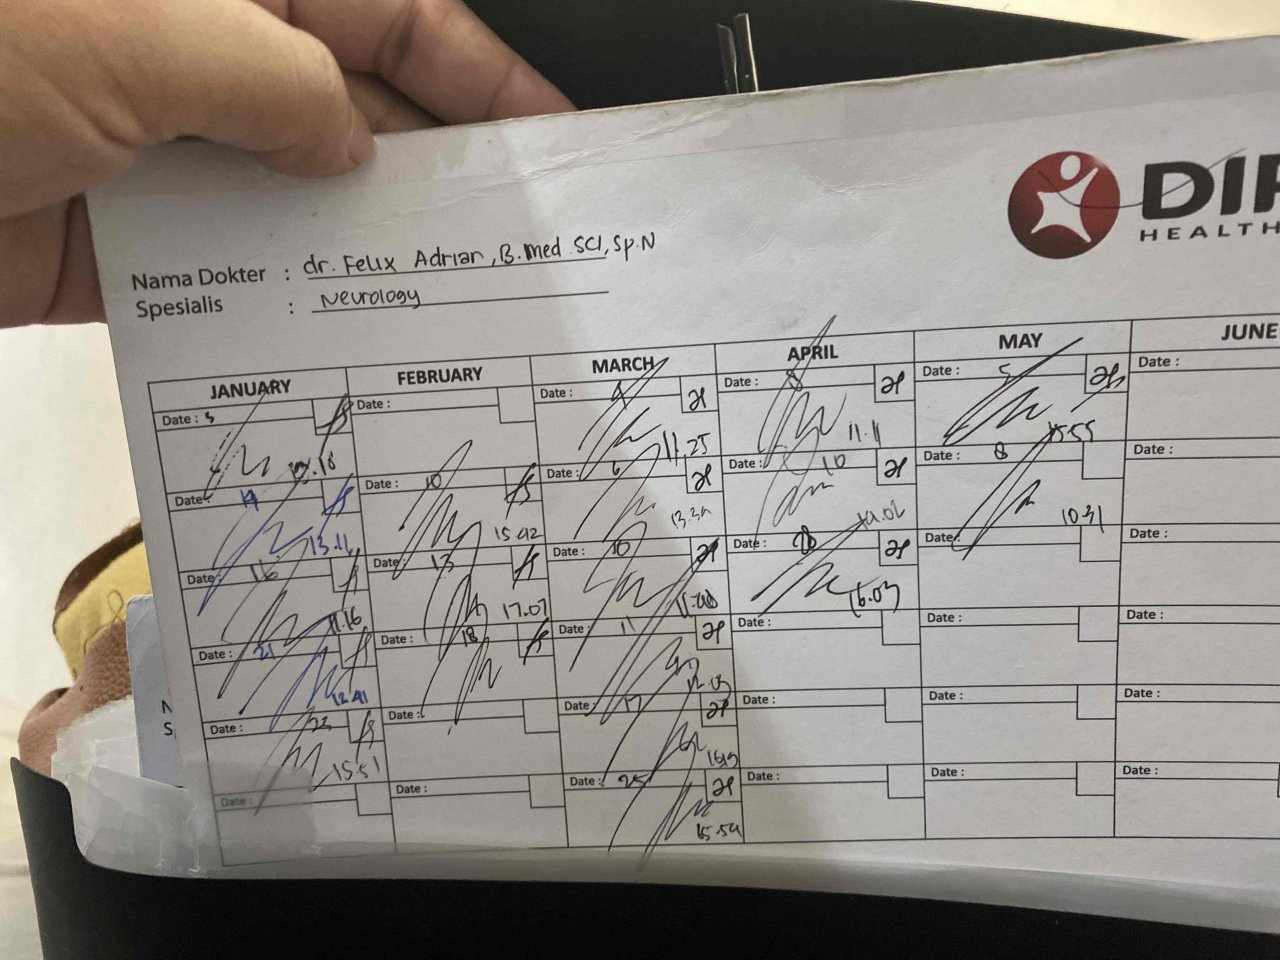 DI
HEALTH
Nama Dokter : dr. Felix Adrian, B.Med SCI, Sp.N
Spesialis : Neurology
JANUARY FEBRUARY MARCH APRIL MAY JUNE
Date : Date : Date : Date : 8 Date : 5 Date :
11.25 11.11 15.55
Date : 10 Date : 6 Date : 10 Date : 8 Date :
13.11 15.42 13.34 10.31
Date : 16 Date : 13 Date : 10 Date : Date : Date :
11.16 17.07 16.03
Date : 21 Date : 18 Date : 11 Date : Date : Date :
12.41 12.09
Date : 22 Date : Date : 17 Date : Date : Date :
15.51
Date : Date : Date : 25 Date : Date : Date :
15.54